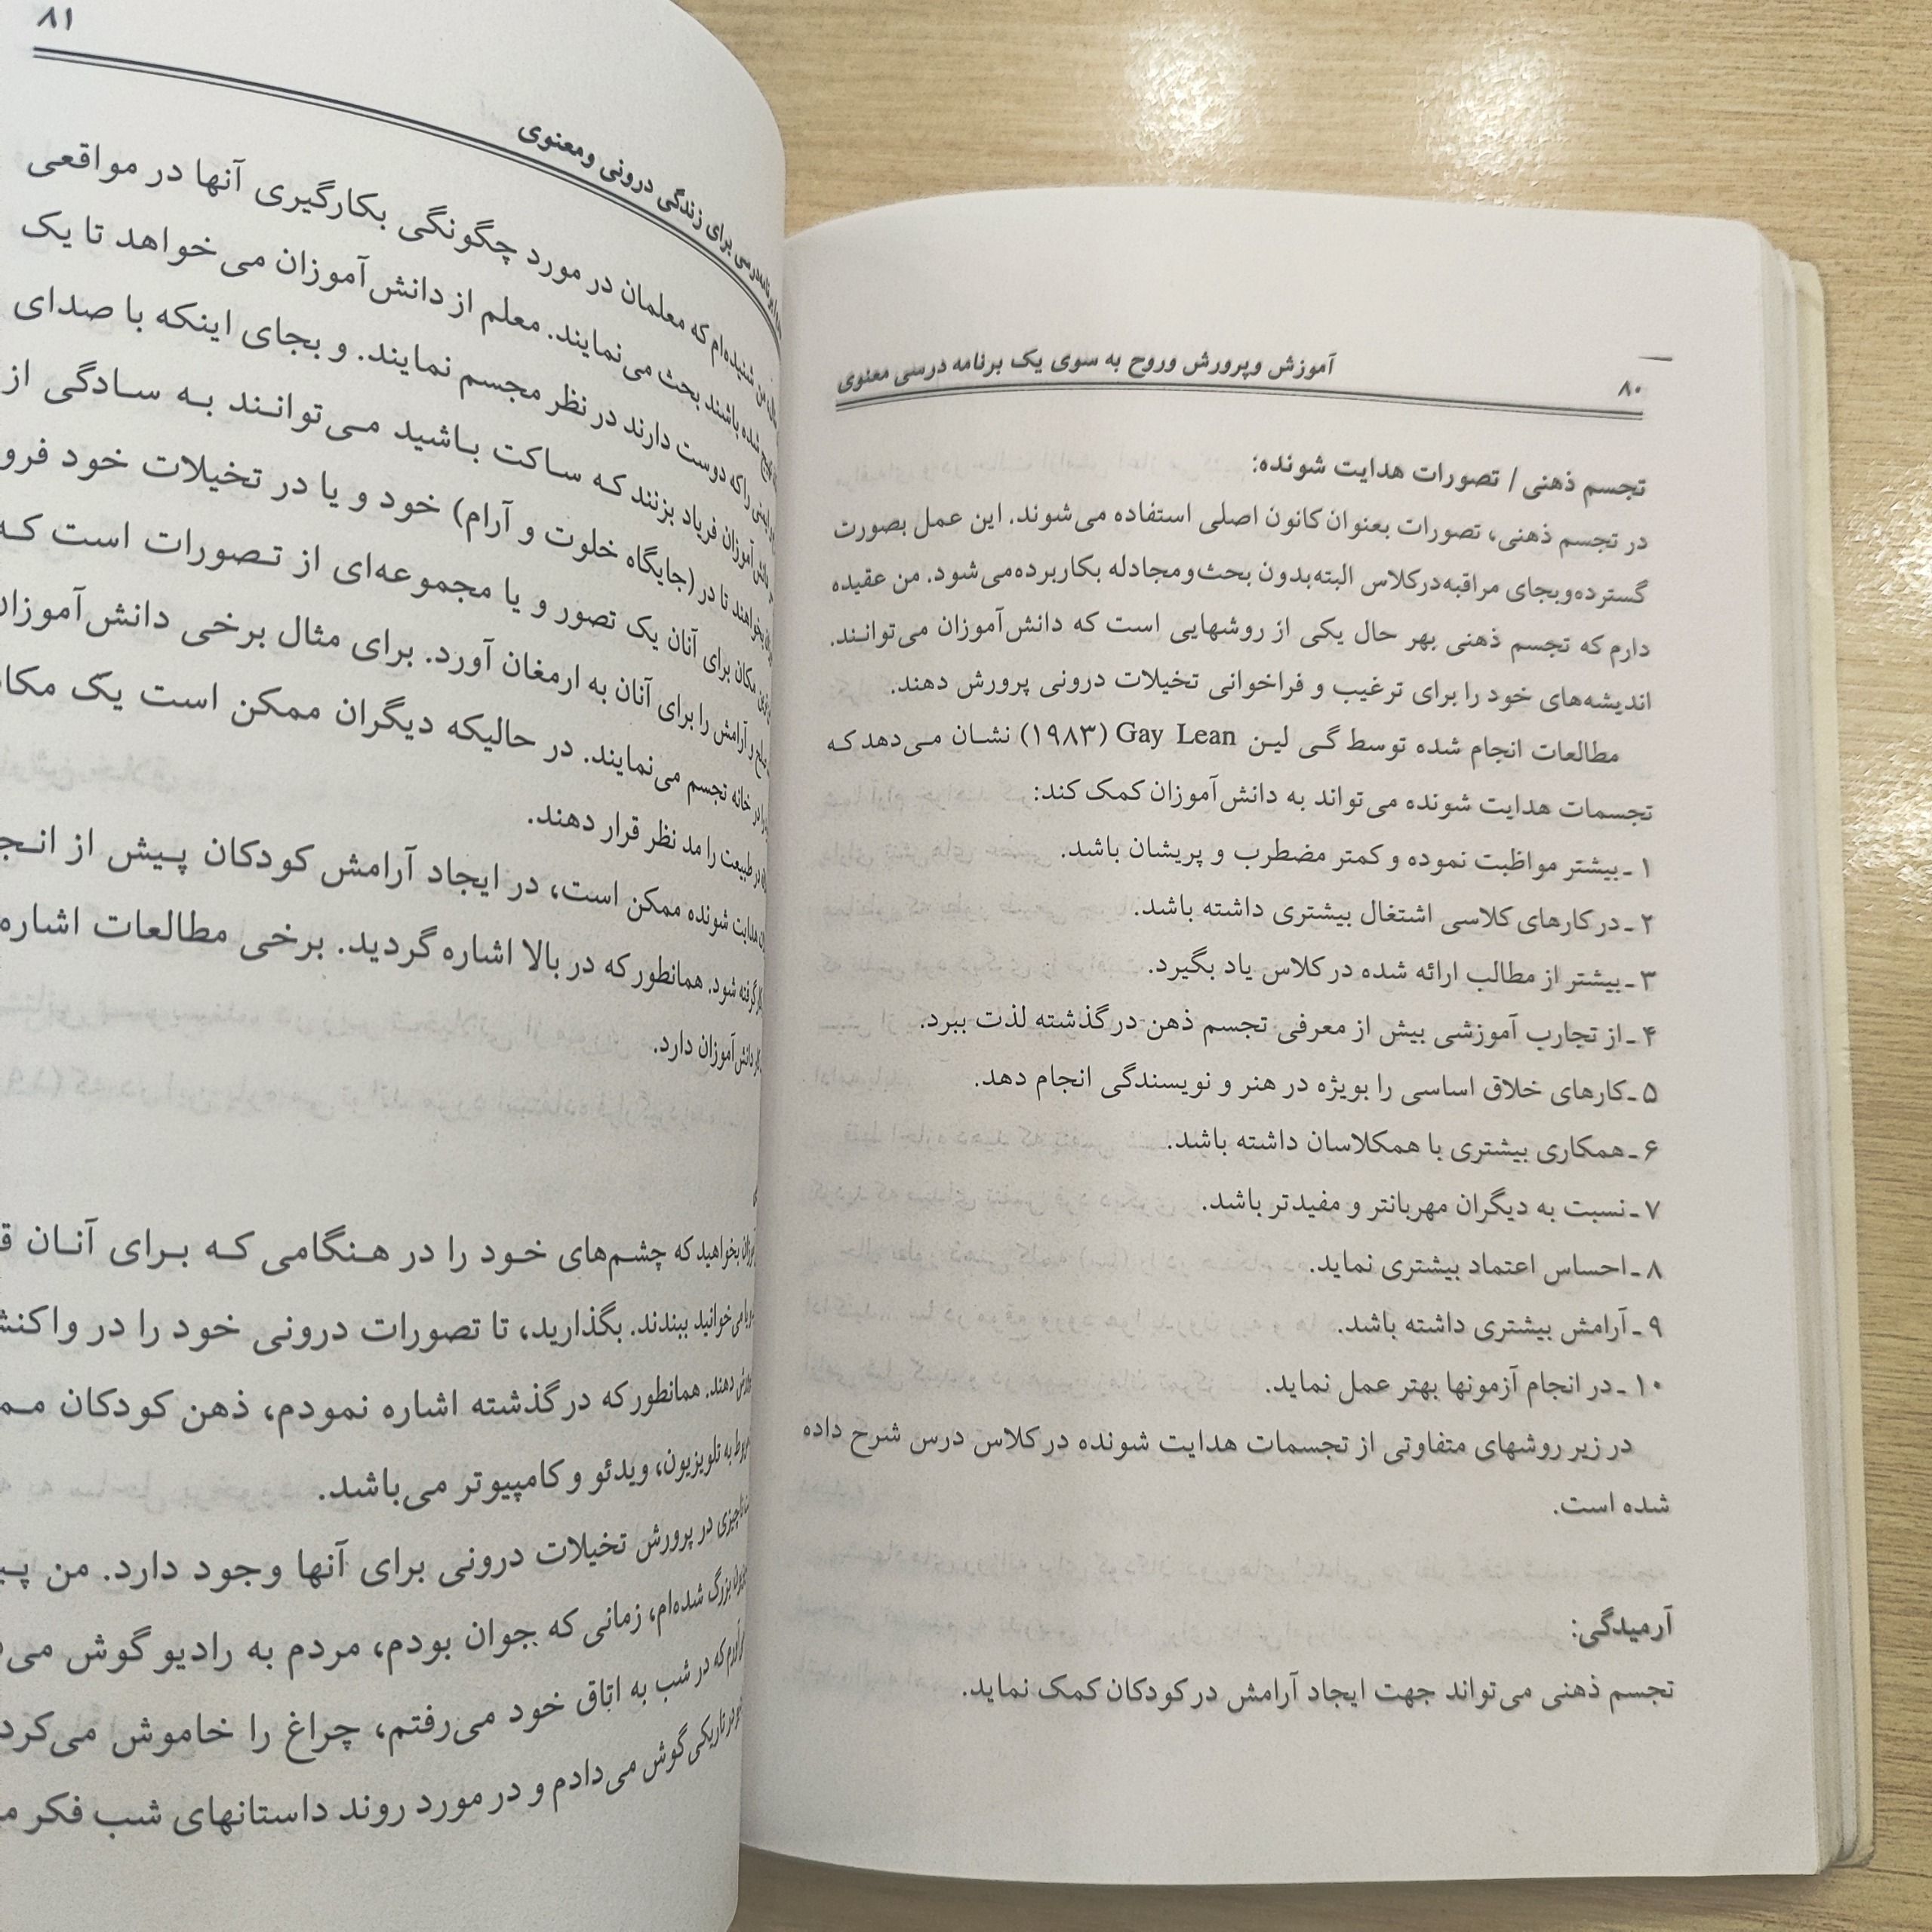 ۸۰
آموزش وپرورش وروح به سوی یک برنامه درسی معنوی
تجسم ذهنی / تصورات هدایت شونده:
در تجسم ذهنی، تصورات بعنوان کانون اصلی استفاده می‌شوند. این عمل بصورت
گسترده‌وبجای مراقبه‌درکلاس البته‌بدون بحث‌ومجادله بکاربرده‌می‌شود. من عقیده
دارم که تجسم ذهنی بهر حال یکی از روشهایی است که دانش‌آموزان می‌توانند.
اندیشه‌های خود را برای ترغیب و فراخوانی تخیلات درونی پرورش دهند.
مطالعات انجام شده توسط گی لین Gay Lean (۱۹۸۳) نشان می‌دهد که
تجسمات هدایت شونده می‌تواند به دانش‌آموزان کمک کند:
۱ ـ بیشتر مواظبت نموده و کمتر مضطرب و پریشان باشد.
۲ ـ در کارهای کلاسی اشتغال بیشتری داشته باشد.
۳ ـ بیشتر از مطالب ارائه شده در کلاس یاد بگیرد.
۴ ـ از تجارب آموزشی بیش از معرفی تجسم ذهن در گذشته لذت ببرد.
۵ ـ کارهای خلاق اساسی را بویژه در هنر و نویسندگی انجام دهد.
۶ ـ همکاری بیشتری با همکلاسان داشته باشد.
۷ ـ نسبت به دیگران مهربانتر و مفیدتر باشد.
۸ ـ احساس اعتماد بیشتری نماید.
۹ ـ آرامش بیشتری داشته باشد.
۱۰ ـ در انجام آزمونها بهتر عمل نماید.
در زیر روشهای متفاوتی از تجسمات هدایت شونده در کلاس درس شرح داده
شده است.
آرمیدگی:
تجسم ذهنی می‌تواند جهت ایجاد آرامش در کودکان کمک نماید.
۸۱
برای زندگی درونی ومعنوی
شنیده‌ام که معلمان در مورد چگونگی بکارگیری آنها در مواقعی
شده باشند بحث می‌نمایند. معلم از دانش‌آموزان می‌خواهد تا یک
را که دوست دارند در نظر مجسم نمایند. و بجای اینکه با صدای
دانش‌آموزان فریاد بزنند که ساکت باشید می‌توانند به سادگی از
بخواهند تا در (جایگاه خلوت و آرام) خود و یا در تخیلات خود فرو
مکان برای آنان یک تصور و یا مجموعه‌ای از تصورات است که
و آرامش را برای آنان به ارمغان آورد. برای مثال برخی دانش‌آموزان
را در خانه تجسم می‌نمایند. در حالیکه دیگران ممکن است یک
در طبیعت را مد نظر قرار دهند.
هدایت شونده ممکن است، در ایجاد آرامش کودکان پیش از
گرفته شود. همانطور که در بالا اشاره گردید. برخی مطالعات اشاره
دانش‌آموزان دارد.
بخواهید که چشم‌های خود را در هنگامی که برای آنان
می‌خوانید ببندند. بگذارید، تا تصورات درونی خود را در
دهند. همانطور که در گذشته اشاره نمودم، ذهن کودکان
به تلویزیون، ویدئو و کامپیوتر می‌باشد.
در پرورش تخیلات درونی برای آنها وجود دارد. من
بزرگ شده‌ام، زمانی که جوان بودم، مردم به رادیو گوش
که در شب به اتاق خود می‌رفتم، چراغ را خاموش
در تاریکی گوش می‌دادم و در مورد روند داستانهای شب فکر